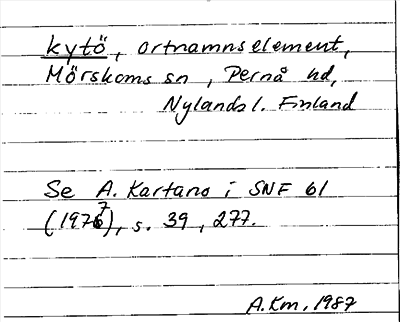 kytö, ortnamnselement,
Mörskoms sn, Pernå hd,
Nylands l. Finland
Se A. Kartano i SNF 61
(1977), s. 39, 277.
A.Km, 1987